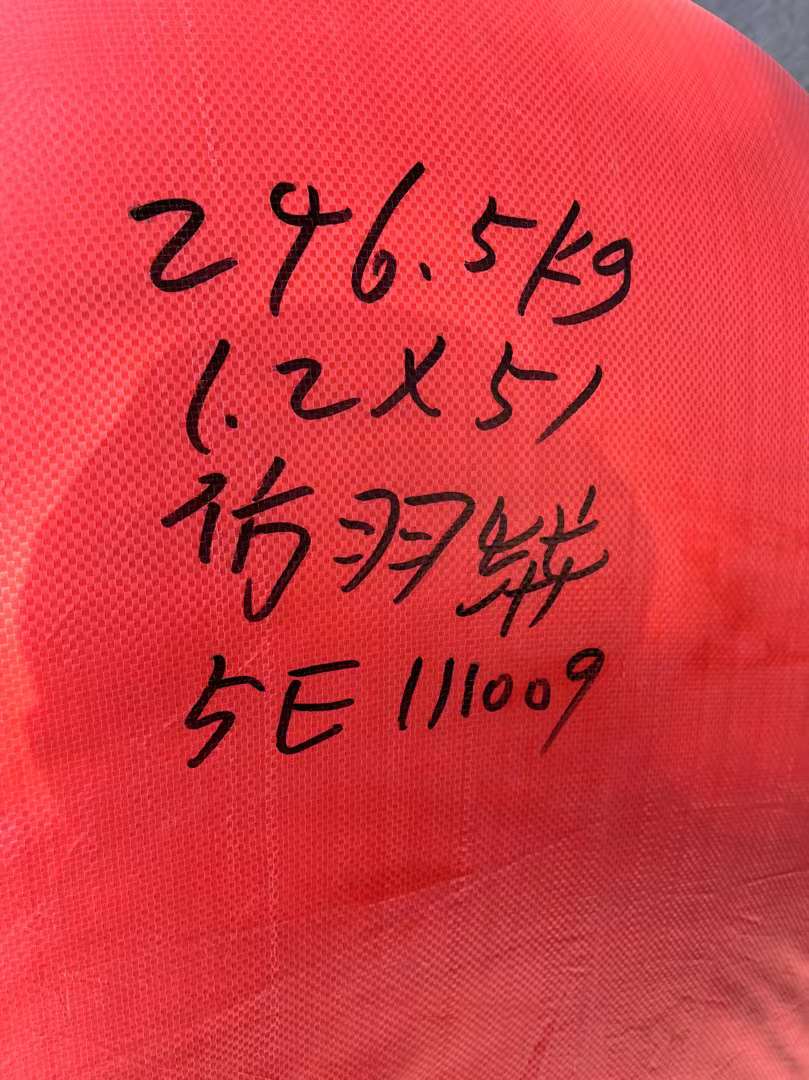 246.5kg
1.2×51
仿羽
5E111009